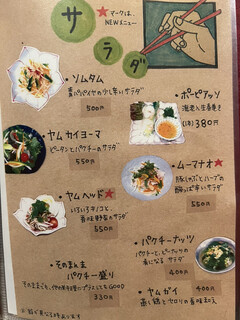 サラダ
★マークは、
NEWメニュー
・ソムタム
青パパイヤの少し辛いサラダ
500円
・ポーピアソッ
海老入生春巻き
(1本)380円
・ヤムカイヨーマ
ピータンとパクチーのサラダ
550円
・ムーマナオ★
豚しゃぶとハーブの
酸っぱ辛いサラダ
550円
・ヤムヘッド★
いろいろキノコと
香味野菜のサラダ
550円
・パクチーナッツ
パクチーと、ピーナッツの
食になるサラダ
400円
・そのまんま
パクチー盛り
そのままでも、他の料理にプラスしてもGOOD
330円
・ヤムガイ 400円
蒸し鶏とセロリの香味和え